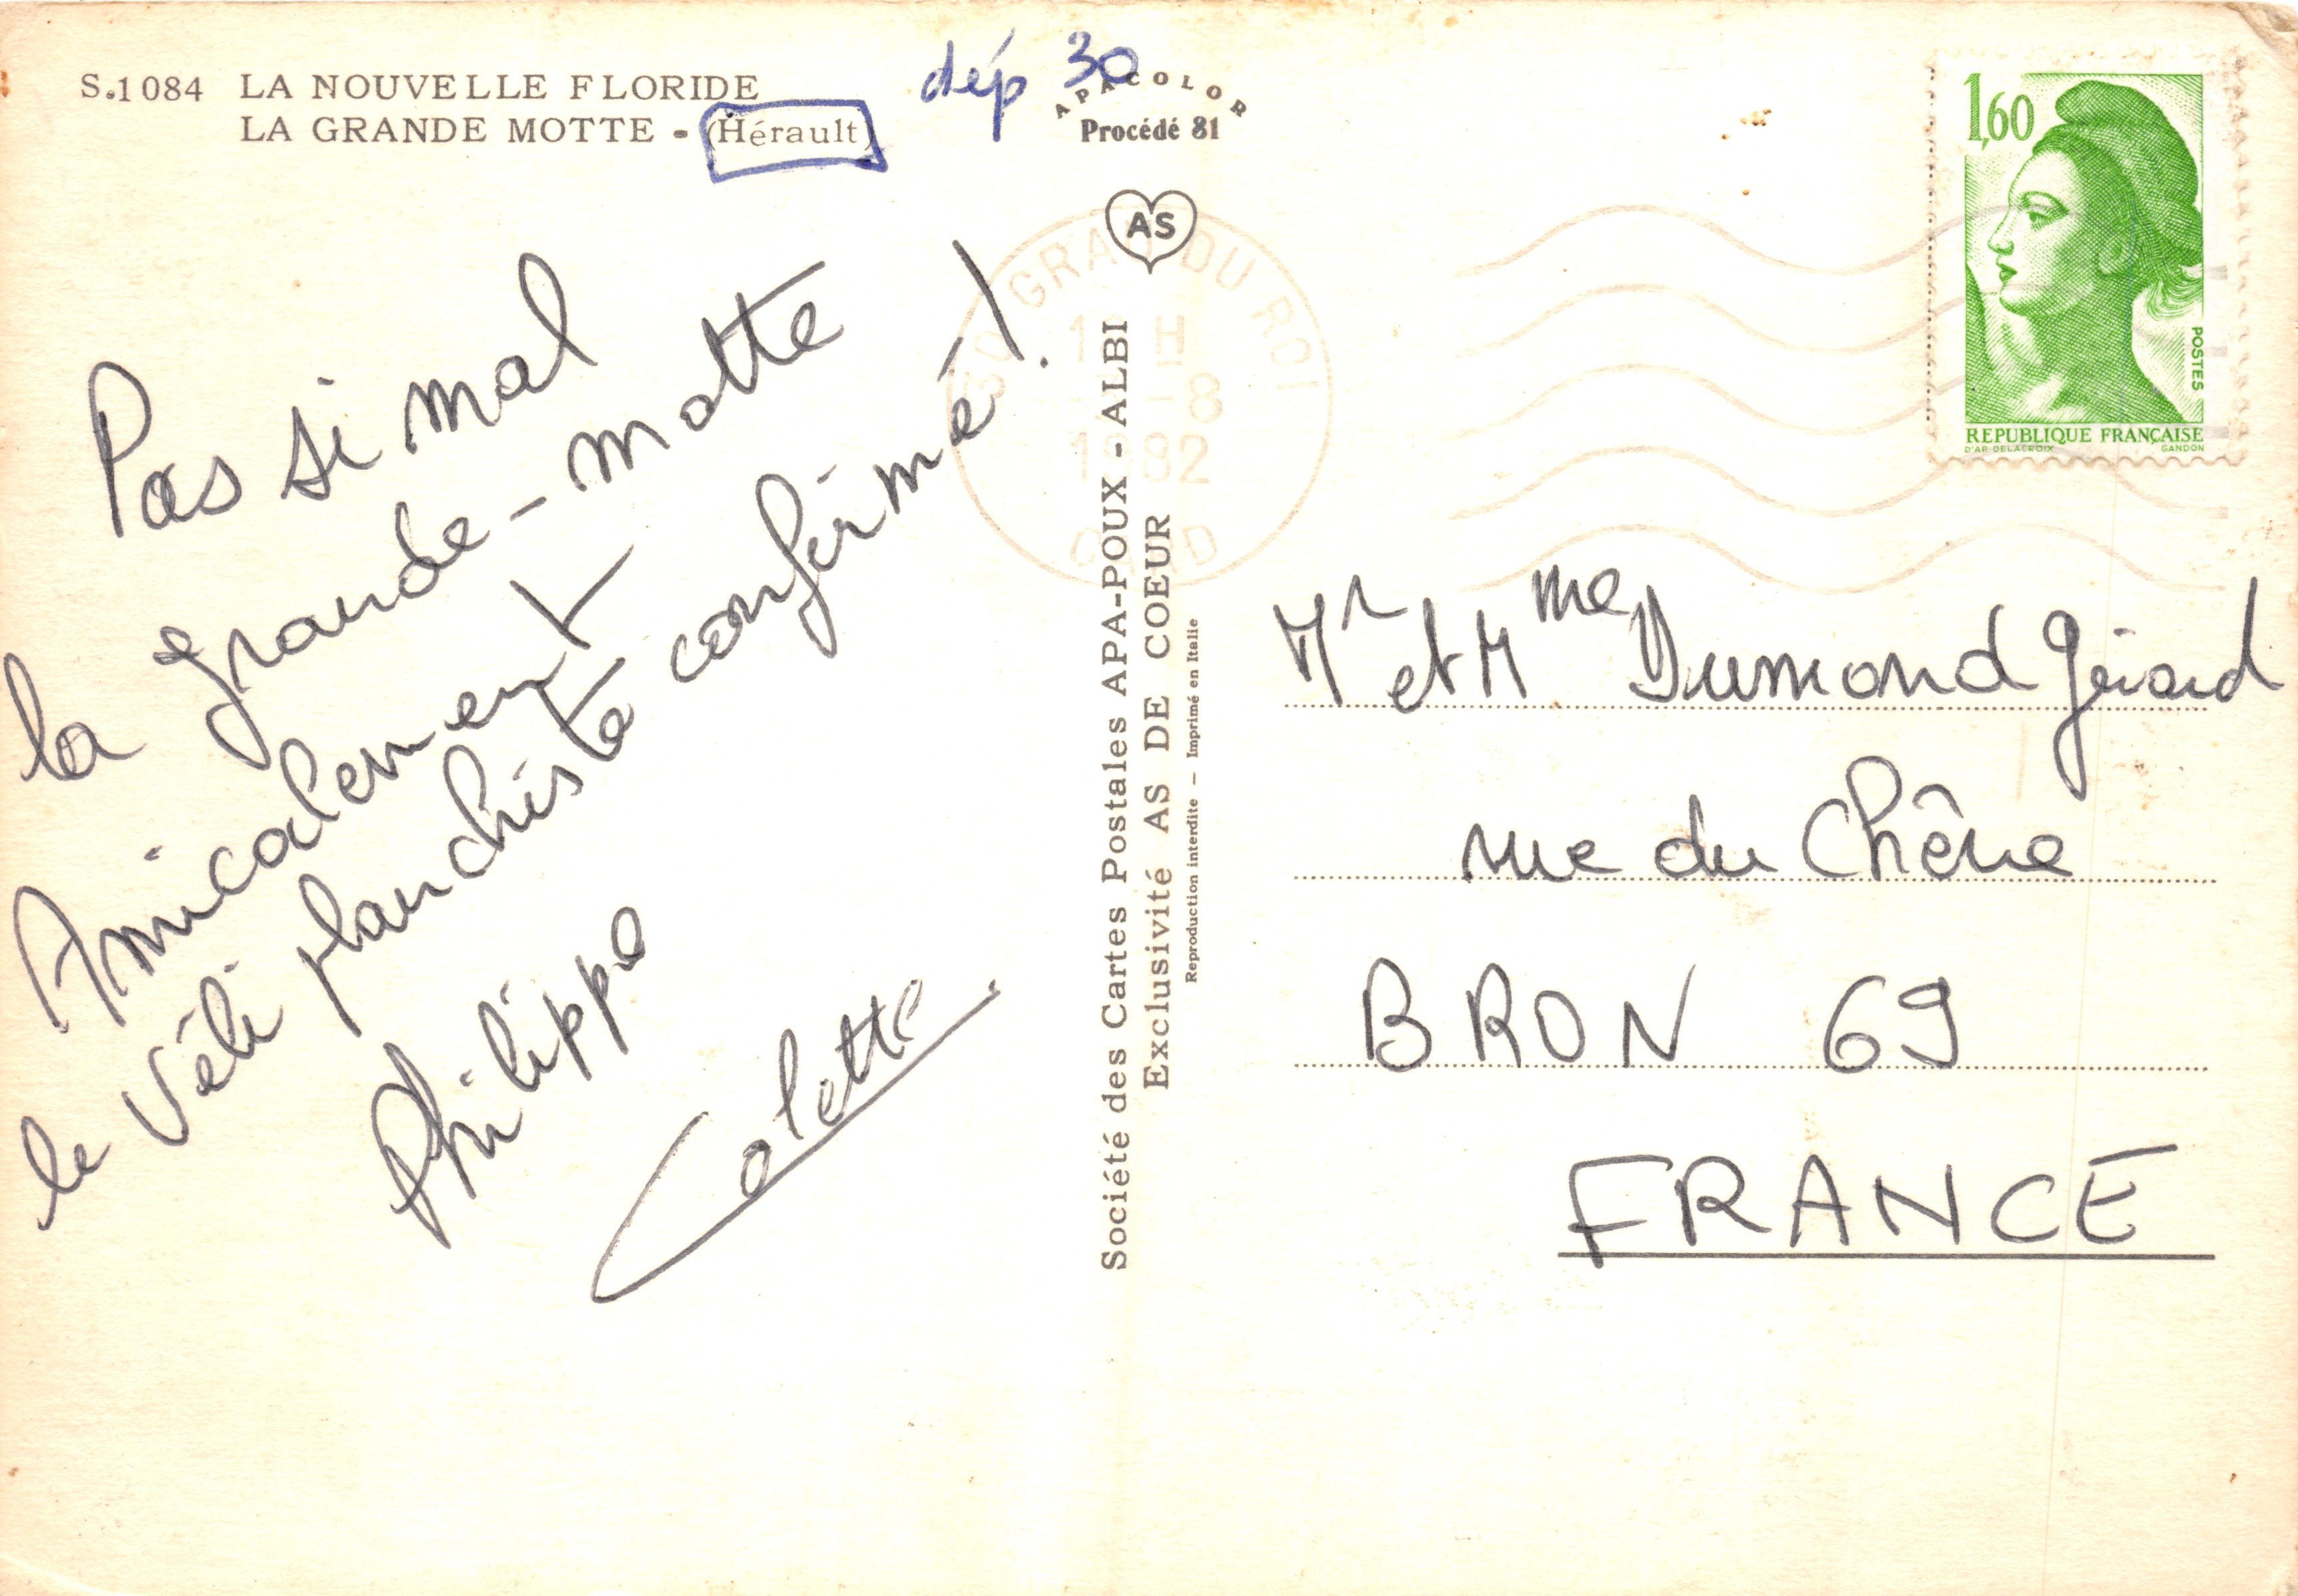 S.1084 LA NOUVELLE FLORIDE
LA GRANDE MOTTE - (Hérault)
dép 30
APACOLOR
Procédé 81
AS
Pas si mal
la grande-motte
Amicalement
le véli planchiste confirmé!
Philippe
Colette
Société des Cartes Postales APA-POUX - ALBI
Exclusivité AS DE COEUR
Reproduction interdite – Imprimé en Italie
30 GRAU DU ROI
H
-8
1982
GARD
1,60
POSTES
REPUBLIQUE FRANÇAISE
D'AP. DELACROIX GANDON
Mr et Mme Dumond Gérard
rue du Chêne
BRON 69
FRANCE